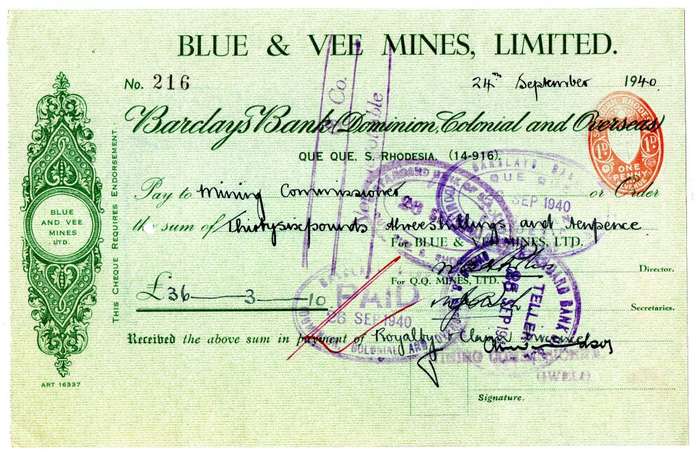 BLUE & VEE MINES, LIMITED.
No. 216
24th September 1940.
Barclays Bank (Dominion, Colonial and Overseas)
QUE QUE, S. RHODESIA. (14-916).
Pay to Mining Commissioner or Order
the sum of Thirtysix pounds three shillings and tenpence
For BLUE & VEE MINES, LTD.
Director.
For Q.Q. MINES, LTD.
£36 — 3 — 10
Secretaries.
Received the above sum in payment of Royalty
Signature.
THIS CHEQUE REQUIRES ENDORSEMENT.
BLUE
AND VEE
MINES
LTD.
ART 16337
ONE PENNY
1D 1D
& Co.
Not Negotiable
BARCLAYS BANK
QUE QUE
SEP 1940
STANDARD BANK OF
PAID
26 SEP 1940
COLONIAL AND OVERSEAS
STANDARD BANK OF
TELLER
SEP 1940
MINING COMMISSIONER
(GWELO)